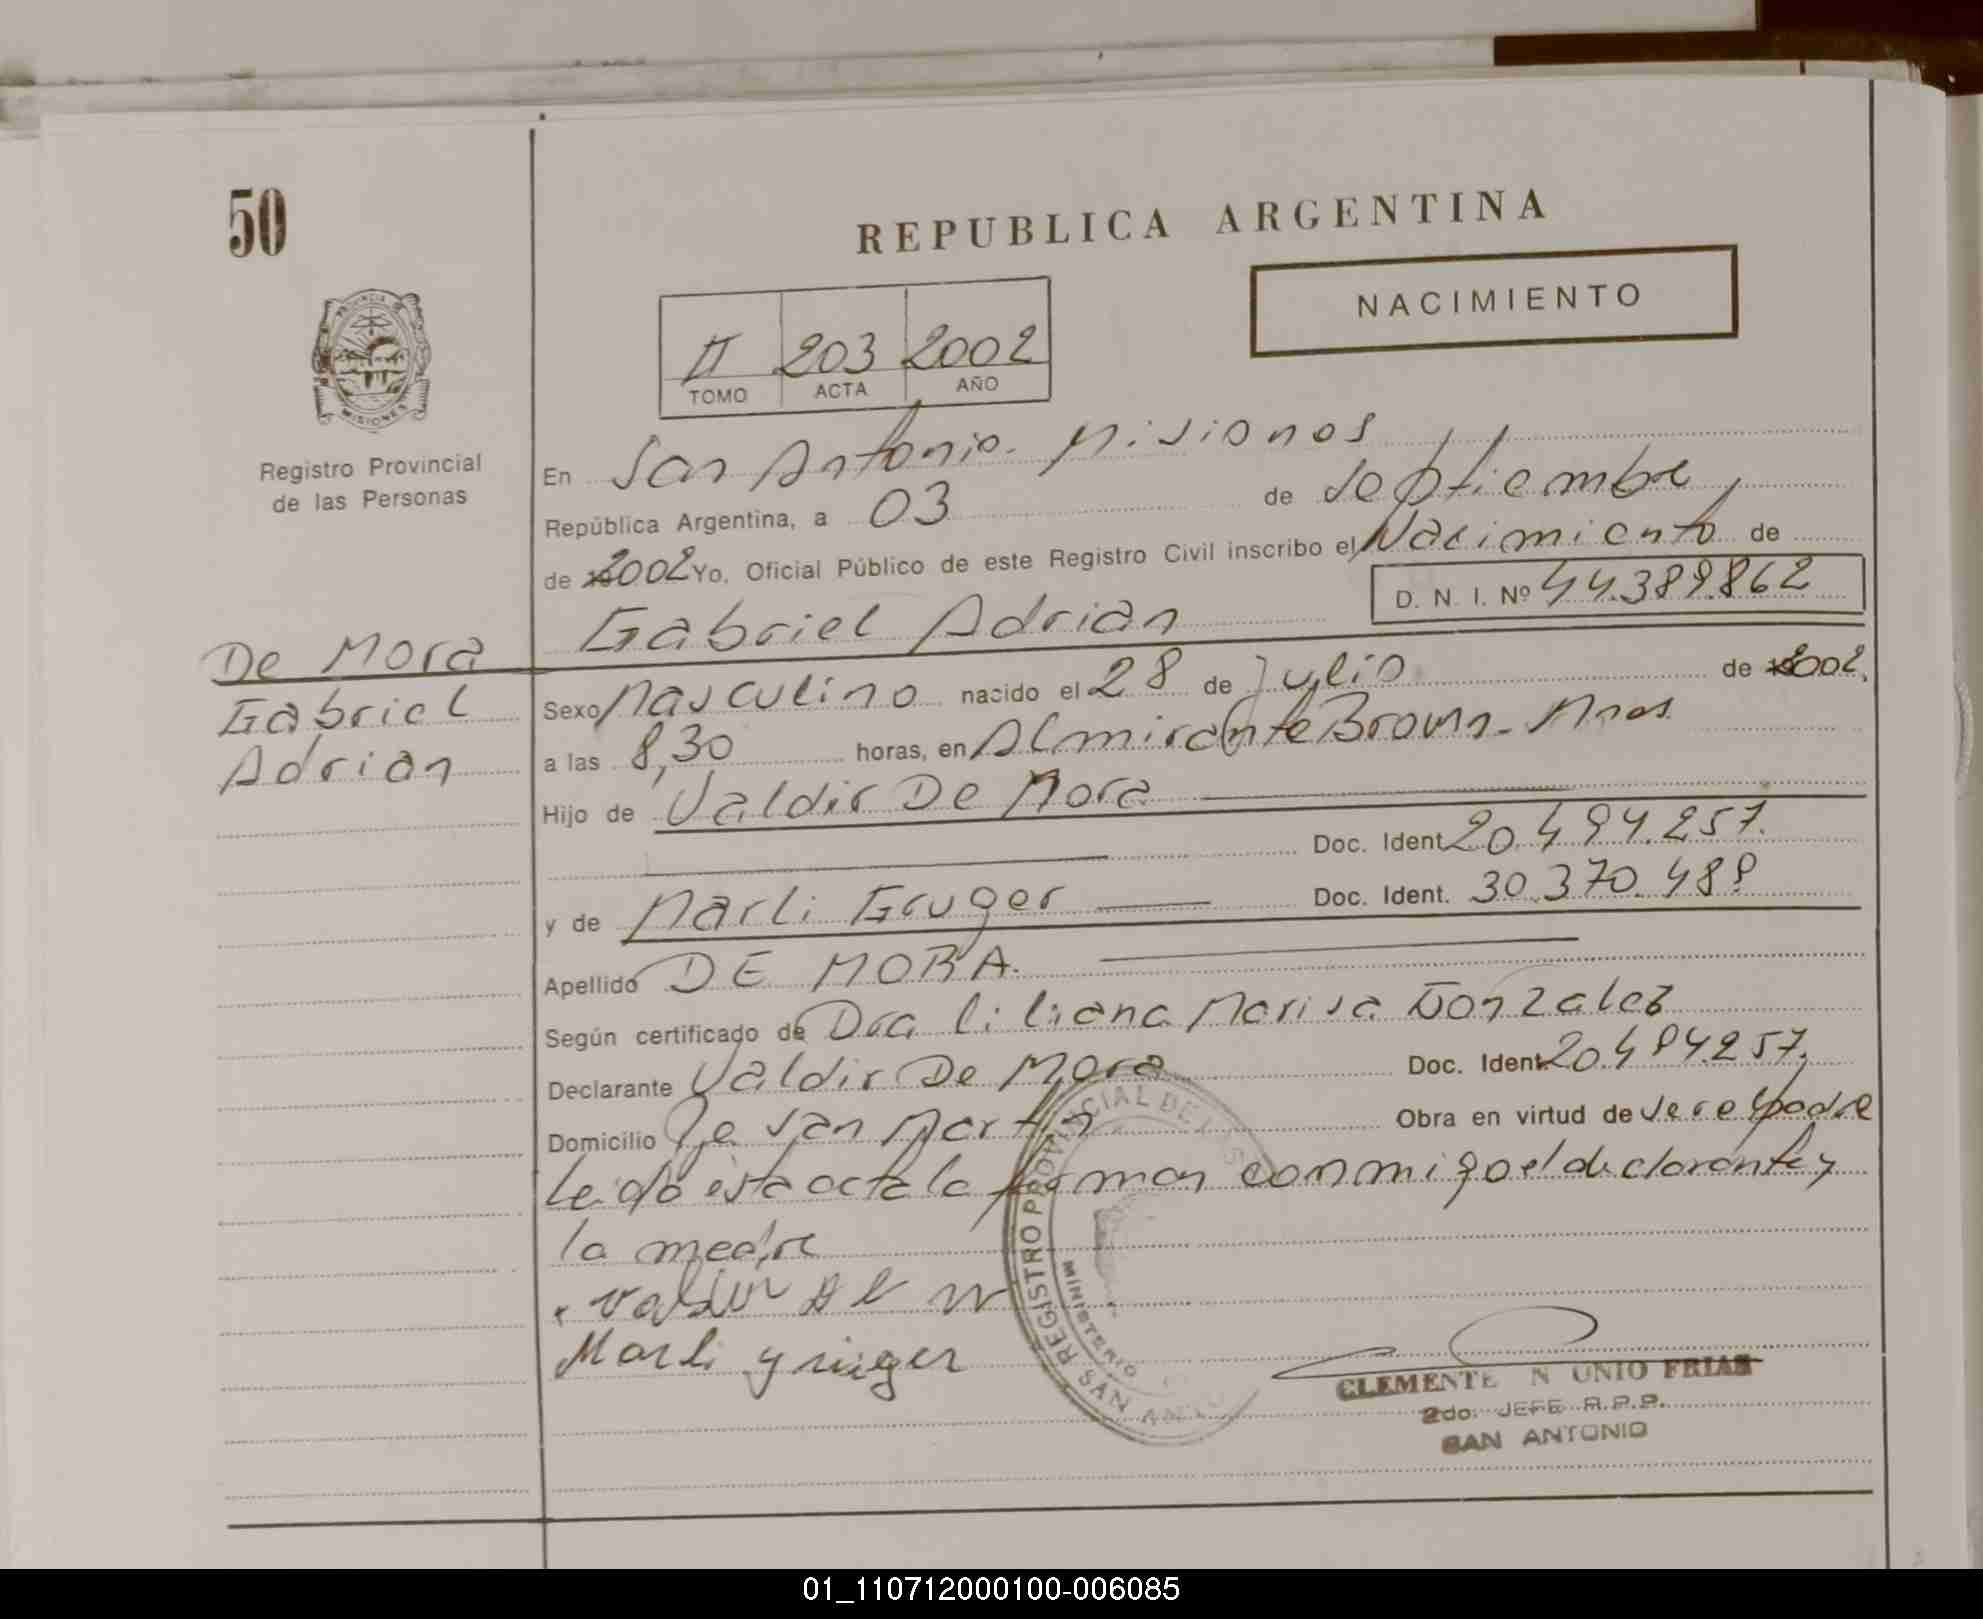 50
REPUBLICA ARGENTINA
NACIMIENTO
II 203 2002
TOMO ACTA AÑO
PROVINCIA DE
MISIONES
Registro Provincial
de las Personas
En San Antonio - Misiones
República Argentina, a 03 de septiembre
de 2002 Yo, Oficial Público de este Registro Civil inscribo el Nacimiento de
D. N. I. Nº 44.389.862
Gabriel Adrian
De Mora
Gabriel
Adrian
Sexo Masculino nacido el 28 de Julio de 2002.
a las 8,30 horas, en Almirante Brown - Mnes.
Hijo de Valdir De Mora
Doc. Ident. 20.494.257.
y de Marli Gruger Doc. Ident. 30.370.489
Apellido DE MORA.
Según certificado de Dra Liliana Marisa Gonzalez
Declarante Valdir De Mora Doc. Ident. 20.494.257.
Domicilio San Martin Obra en virtud de ser el padre
Leida esta acta la firman conmigo el declarante y
la madre
Valdir de M
Marli
REGISTRO PROVINCIAL DE LAS
MINISTERIO
SAN ANTO
CLEMENTE N UNIO FRIAS
2do. JEFE R.P.P.
SAN ANTONIO
01_110712000100-006085